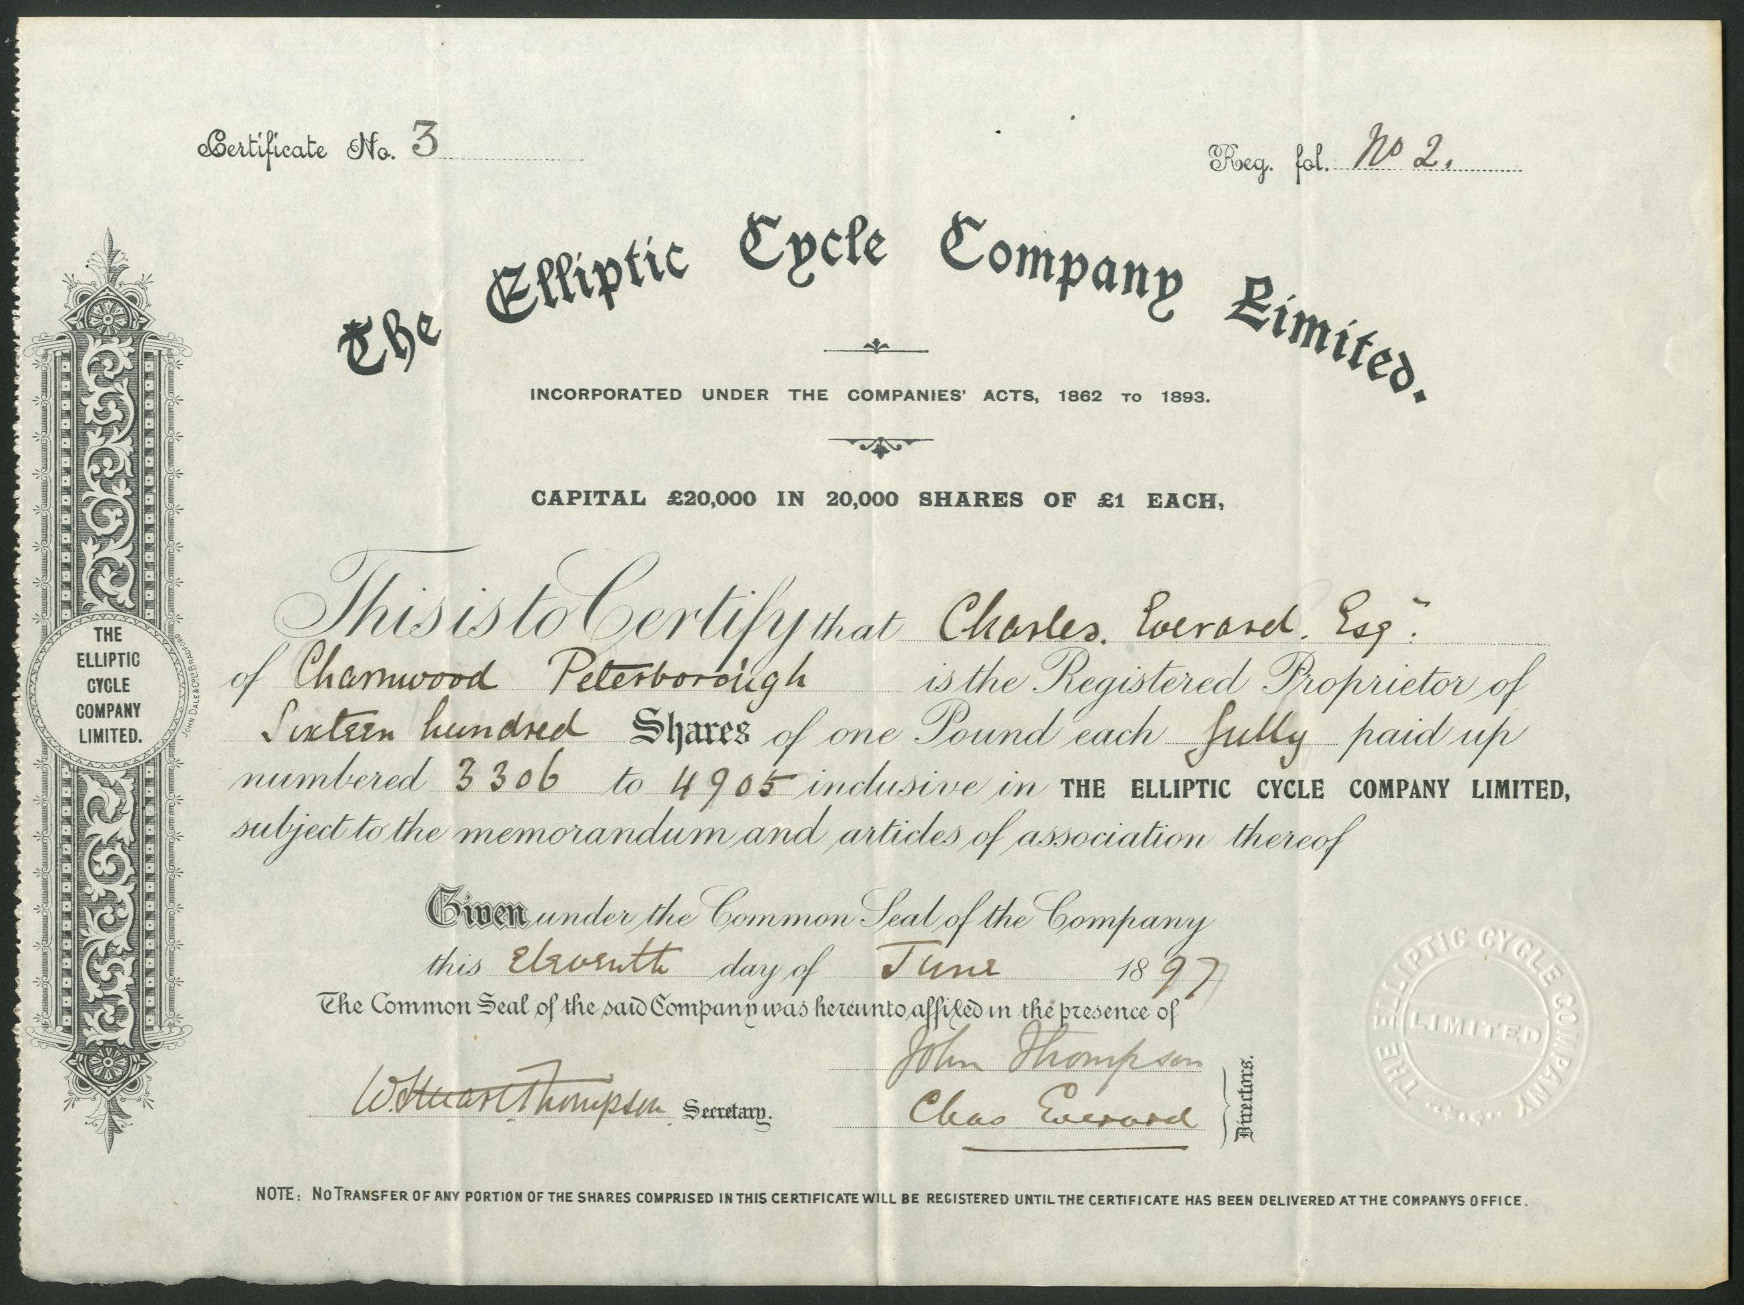 Certificate No. 3
Reg. fol. No 2.
The Elliptic Cycle Company Limited.
INCORPORATED UNDER THE COMPANIES' ACTS, 1862 TO 1893.
CAPITAL £20,000 IN 20,000 SHARES OF £1 EACH,
This is to Certify that Charles. Everard. Esqr.
of Charnwood Peterborough is the Registered Proprietor of
Sixteen hundred Shares of one Pound each fully paid up
numbered 3306 to 4905 inclusive in THE ELLIPTIC CYCLE COMPANY LIMITED,
subject to the memorandum and articles of association thereof
Given under the Common Seal of the Company
this Eleventh day of June 1897
The Common Seal of the said Company was hereunto affixed in the presence of
John Thompson
W. Stuart Thompson Secretary.
Chas Everard
Directors.
NOTE: NO TRANSFER OF ANY PORTION OF THE SHARES COMPRISED IN THIS CERTIFICATE WILL BE REGISTERED UNTIL THE CERTIFICATE HAS BEEN DELIVERED AT THE COMPANYS OFFICE.
THE
ELLIPTIC
CYCLE
COMPANY
LIMITED.
JOHN DALE & CO LD BRADFORD
THE ELLIPTIC CYCLE COMPANY
LIMITED